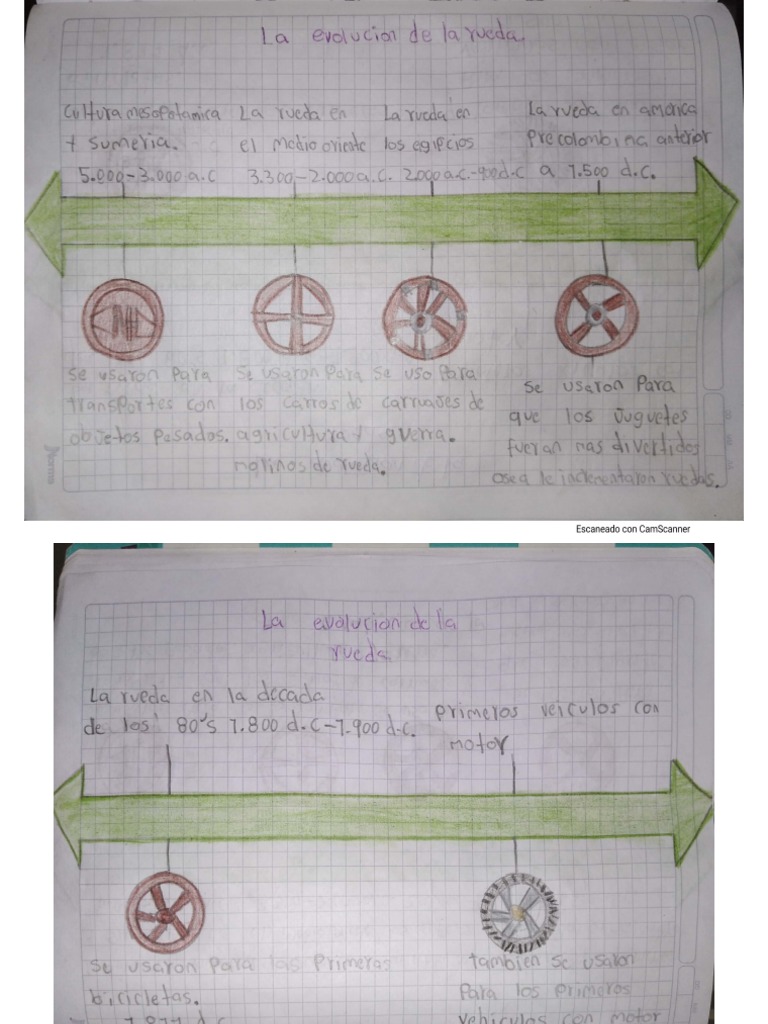 La evolucion de la rueda.
Cultura mesopotamica
y sumeria.
5.000-3.000 a.c
La rueda en
el medio oriente
3.300-2.000 a.c.
La rueda en
los egipcios
2000 a.c.-400 d.c
La rueda en america
precolombina anterior
a 1.500 d.c.
se usaron para
transportes con
objetos pesados.
se usaron para
los carros de
agricultura y
molinos de rueda.
se uso para
carruajes de
guerra.
se usaron para
que los juguetes
fueran mas divertidos
osea le inclementaron ruedas.
Norma
Escaneado con CamScanner
La evolucion de la
rueda.
La rueda en la decada
de los 80's 1.800 d.c-1.900 d.c.
primeros veiculos con
motor
se usaron para las primeras
bicicletas.
1.877 d.c
tambien se usaron
para los primeros
vehiculos con motor